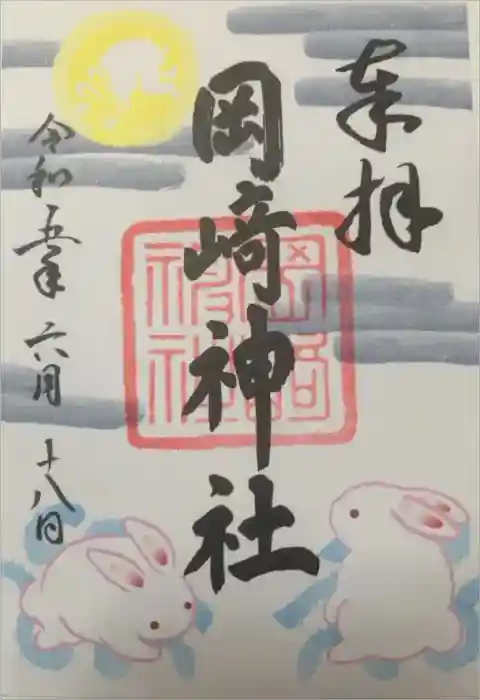 奉拝
岡﨑神社
令和五年
六月
十八日
岡崎神社